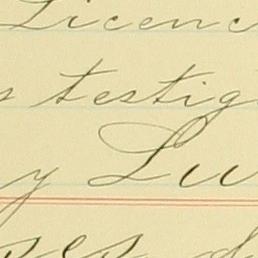 Licenc
s testig
y Lu
ses d